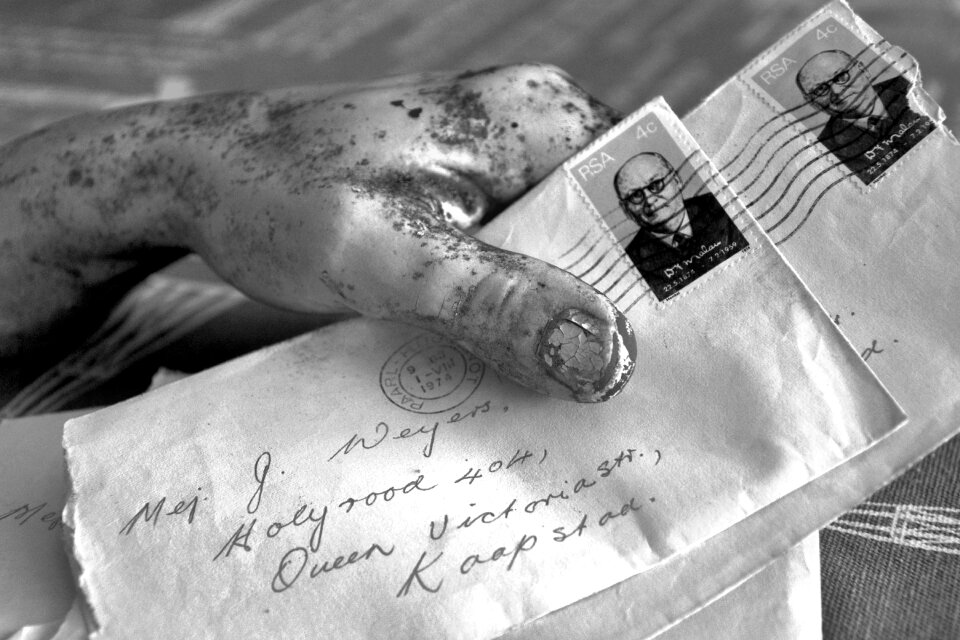 RSA 4c
D F Malan
22.5.1874 - 7.2.1959
RSA 4c
D F Malan
22.5.1874 - 7.2.
PAARL
1-VII
1974
Mej. J. Weyers,
Holyrood 404,
Queen Victoriastr.,
Kaapstad.
Mej
d.